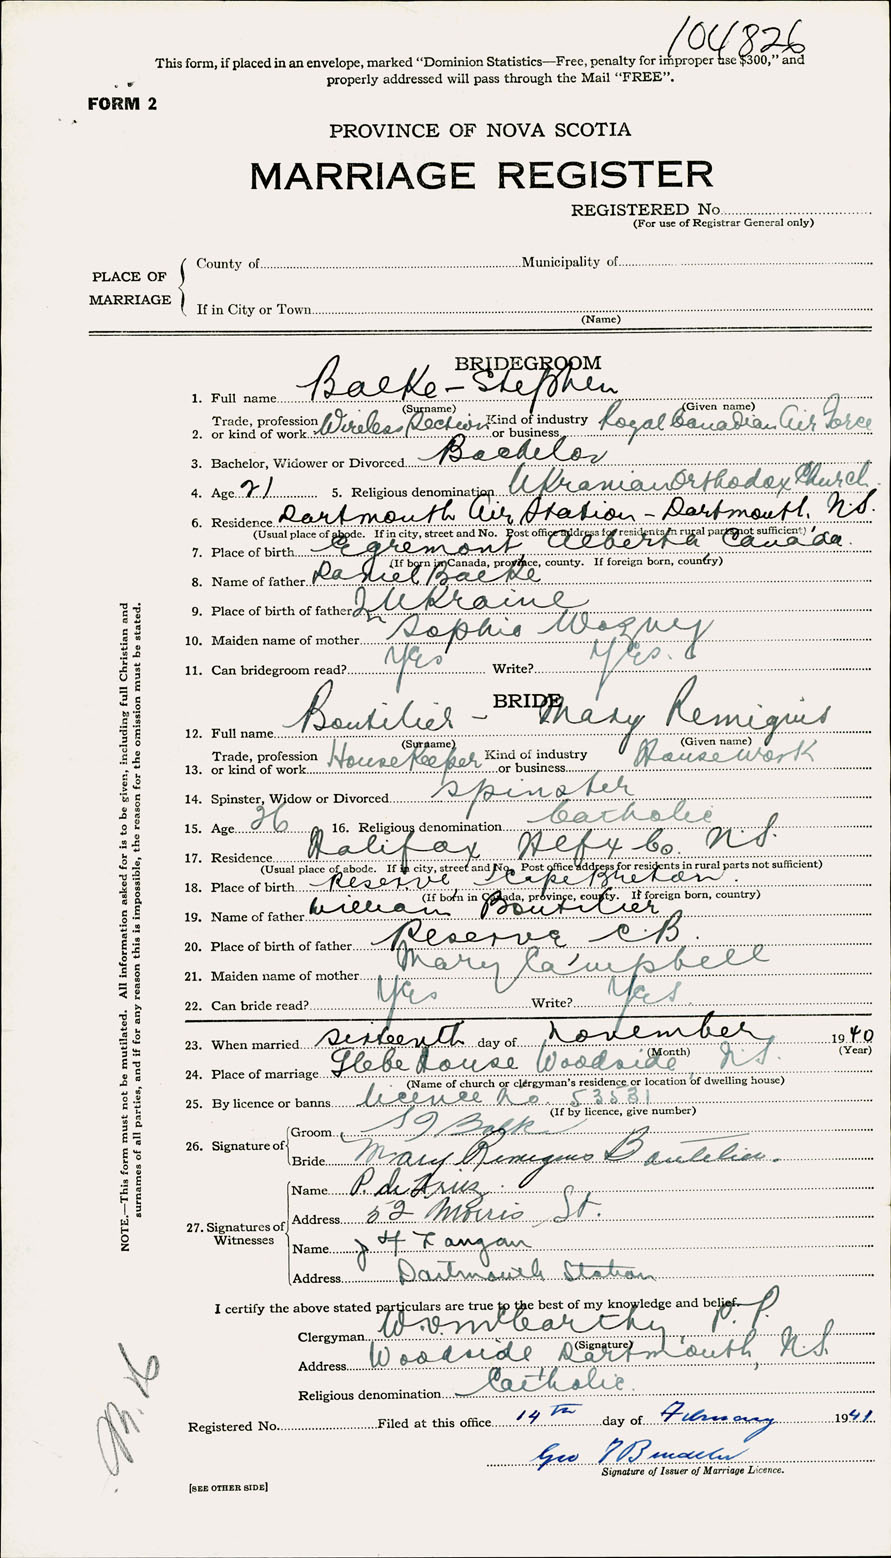 104826
This form, if placed in an envelope, marked "Dominion Statistics—Free, penalty for improper use $300," and
properly addressed will pass through the Mail "FREE".
FORM 2
PROVINCE OF NOVA SCOTIA
MARRIAGE REGISTER
REGISTERED No.
(For use of Registrar General only)
PLACE OF MARRIAGE
County of Municipality of
If in City or Town
(Name)
BRIDEGROOM
1. Full name Balke - Stephen
(Surname) (Given name)
Trade, profession Kind of industry
2. or kind of work Wireless Section or business Royal Canadian Air Force
3. Bachelor, Widower or Divorced Bachelor
4. Age 21 5. Religious denomination Ukranian Orthodox Church.
6. Residence Dartmouth Air Station - Dartmouth, N.S.
(Usual place of abode. If in city, street and No. Post office address for residents in rural parts not sufficient)
7. Place of birth Egremont, Alberta Canada.
(If born in Canada, province, county. If foreign born, country)
8. Name of father Daniel Balke
9. Place of birth of father In Ukraine
10. Maiden name of mother Sophie Wozney
11. Can bridegroom read? Yes Write? Yes.
BRIDE
12. Full name Boutilier - Mary Remigius
(Surname) (Given name)
Trade, profession Kind of industry
13. or kind of work House Keeper or business Housework
14. Spinster, Widow or Divorced Spinster
15. Age 26 16. Religious denomination Catholic
17. Residence Halifax Hlfx Co. N.S.
(Usual place of abode. If in city, street and No. Post office address for residents in rural parts not sufficient)
18. Place of birth Reserve, Cape Breton.
(If born in Canada, province, county. If foreign born, country)
19. Name of father William Boutilier
20. Place of birth of father Reserve C.B.
21. Maiden name of mother Mary Campbell
22. Can bride read? Yes Write? Yes.
23. When married sixteenth day of November 1940
(Month) (Year)
24. Place of marriage Glebe House Woodside, N.S.
(Name of church or clergyman's residence or location of dwelling house)
25. By licence or banns licence No. 53531
(If by licence, give number)
26. Signature of
Groom
Bride Mary Remigius Boutilier.
27. Signatures of Witnesses
Name P.
Address 52 Morris St.
Name J H Langan
Address Dartmouth Station
I certify the above stated particulars are true to the best of my knowledge and belief.
Clergyman W. McCarthy P.P.
(Signature)
Address Woodside Dartmouth, N.S.
Religious denomination Catholic.
Registered No. Filed at this office 14th day of February 1941.
Geo
Signature of Issuer of Marriage Licence.
[SEE OTHER SIDE]
NOTE.—This form must not be mutilated. All information asked for is to be given, including full Christian and
surnames of all parties, and if for any reason this is impossible, the reason for the omission must be stated.